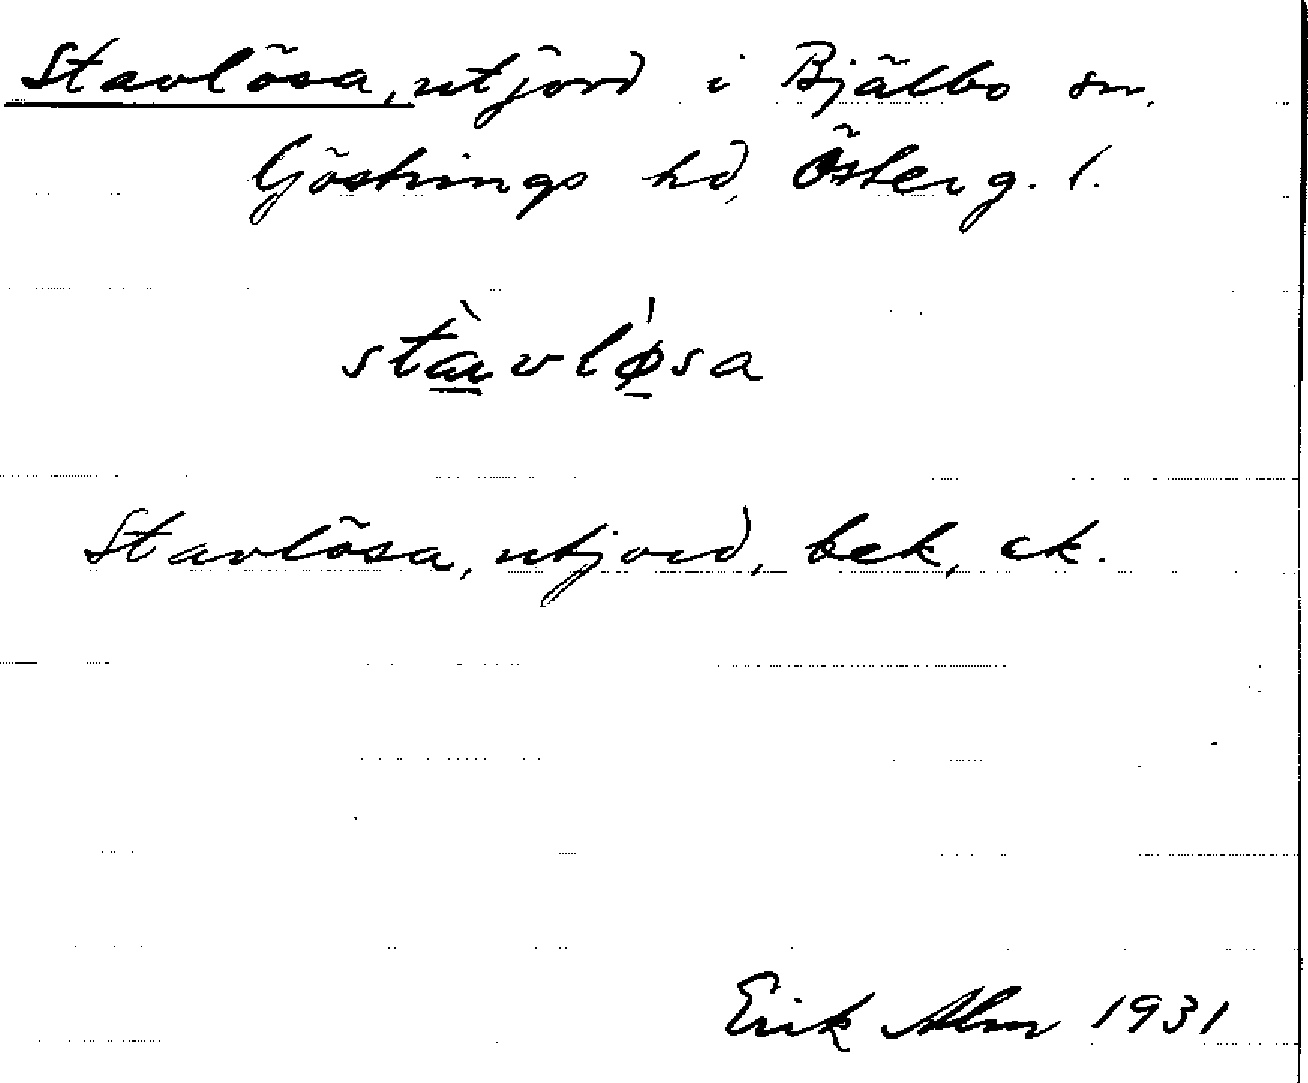 Stavlösa, utjord i Bjälbo sn.
Göstrings hd, Österg. l.
stàvlǿsa
Stavlösa, utjord, bek, ek.
Erik Alm 1931